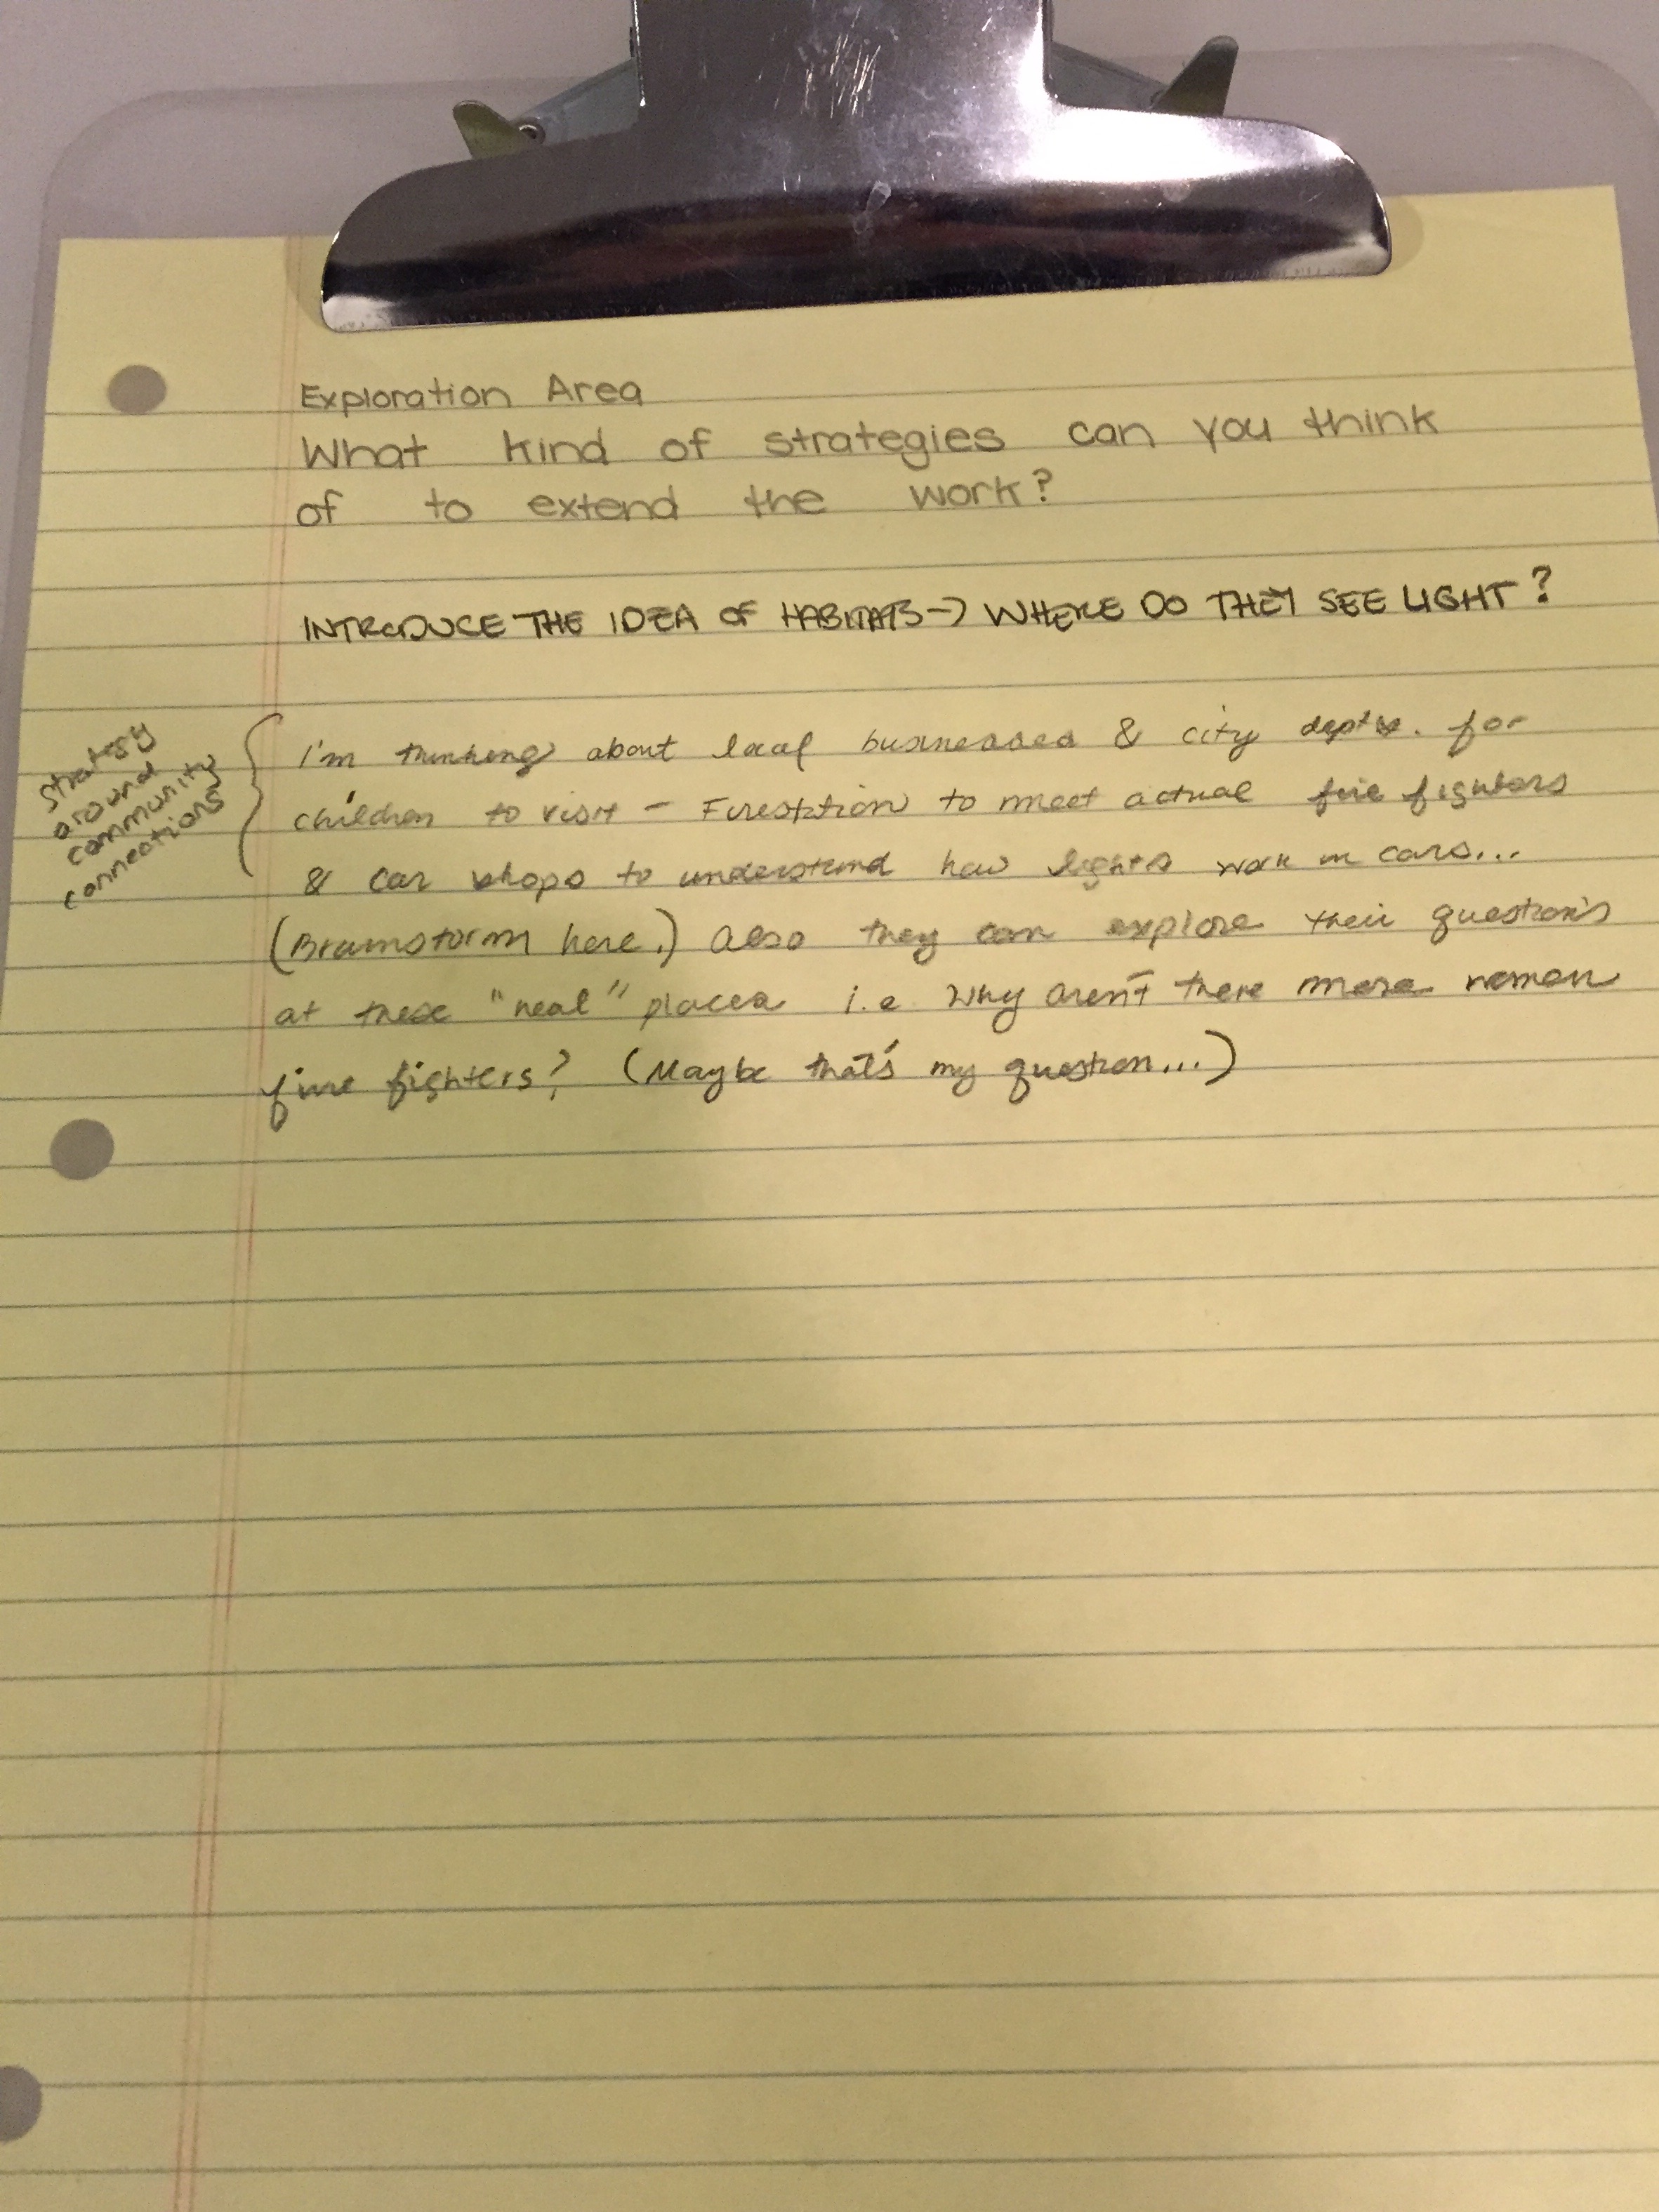 Exploration Area
What kind of strategies can you think
of to extend the work?
INTRODUCE THE IDEA OF HABITATS -> WHERE DO THEY SEE LIGHT?
strategy
around
community
connections
I'm thinking about local businesses & city depts. for
children to visit - Firestation to meet actual fire fighters
& car shops to understand how lights work in cars...
(Brainstorm here.) Also they can explore their questions
at these "real" places i.e Why aren't there more women
fire fighters? (Maybe that's my question...)